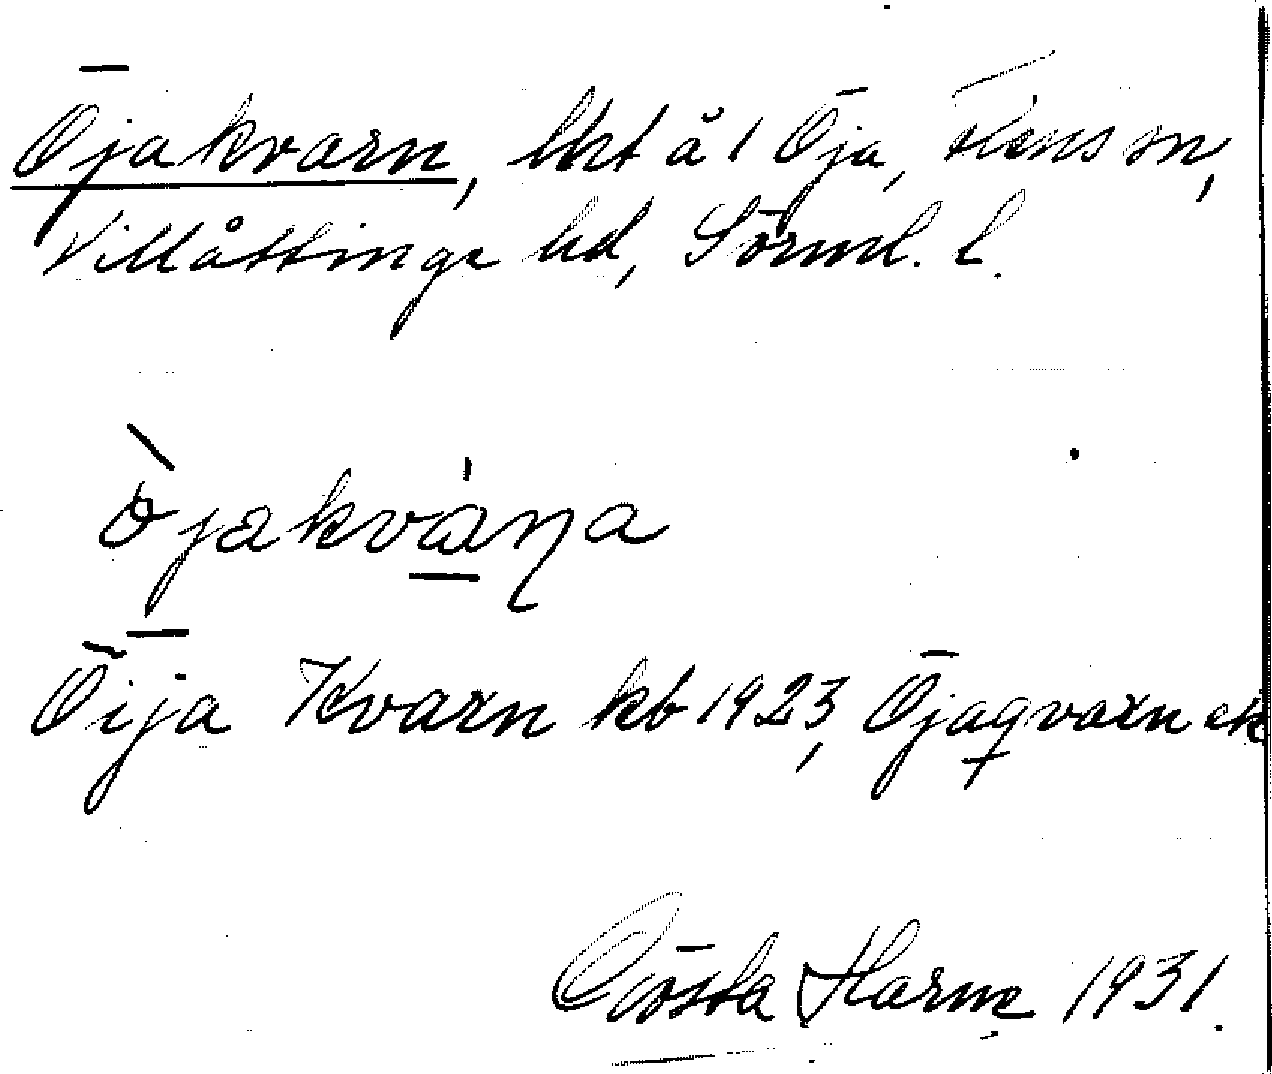 Öjakvarn, lht å 1 Öja, Flens sn,
Villåttinge hd, Sörml. l.
ò̀jakvà̠ṇa
Öija Kvarn kb 1923, Öjaqvarn ek
Gösta Harne 1931.